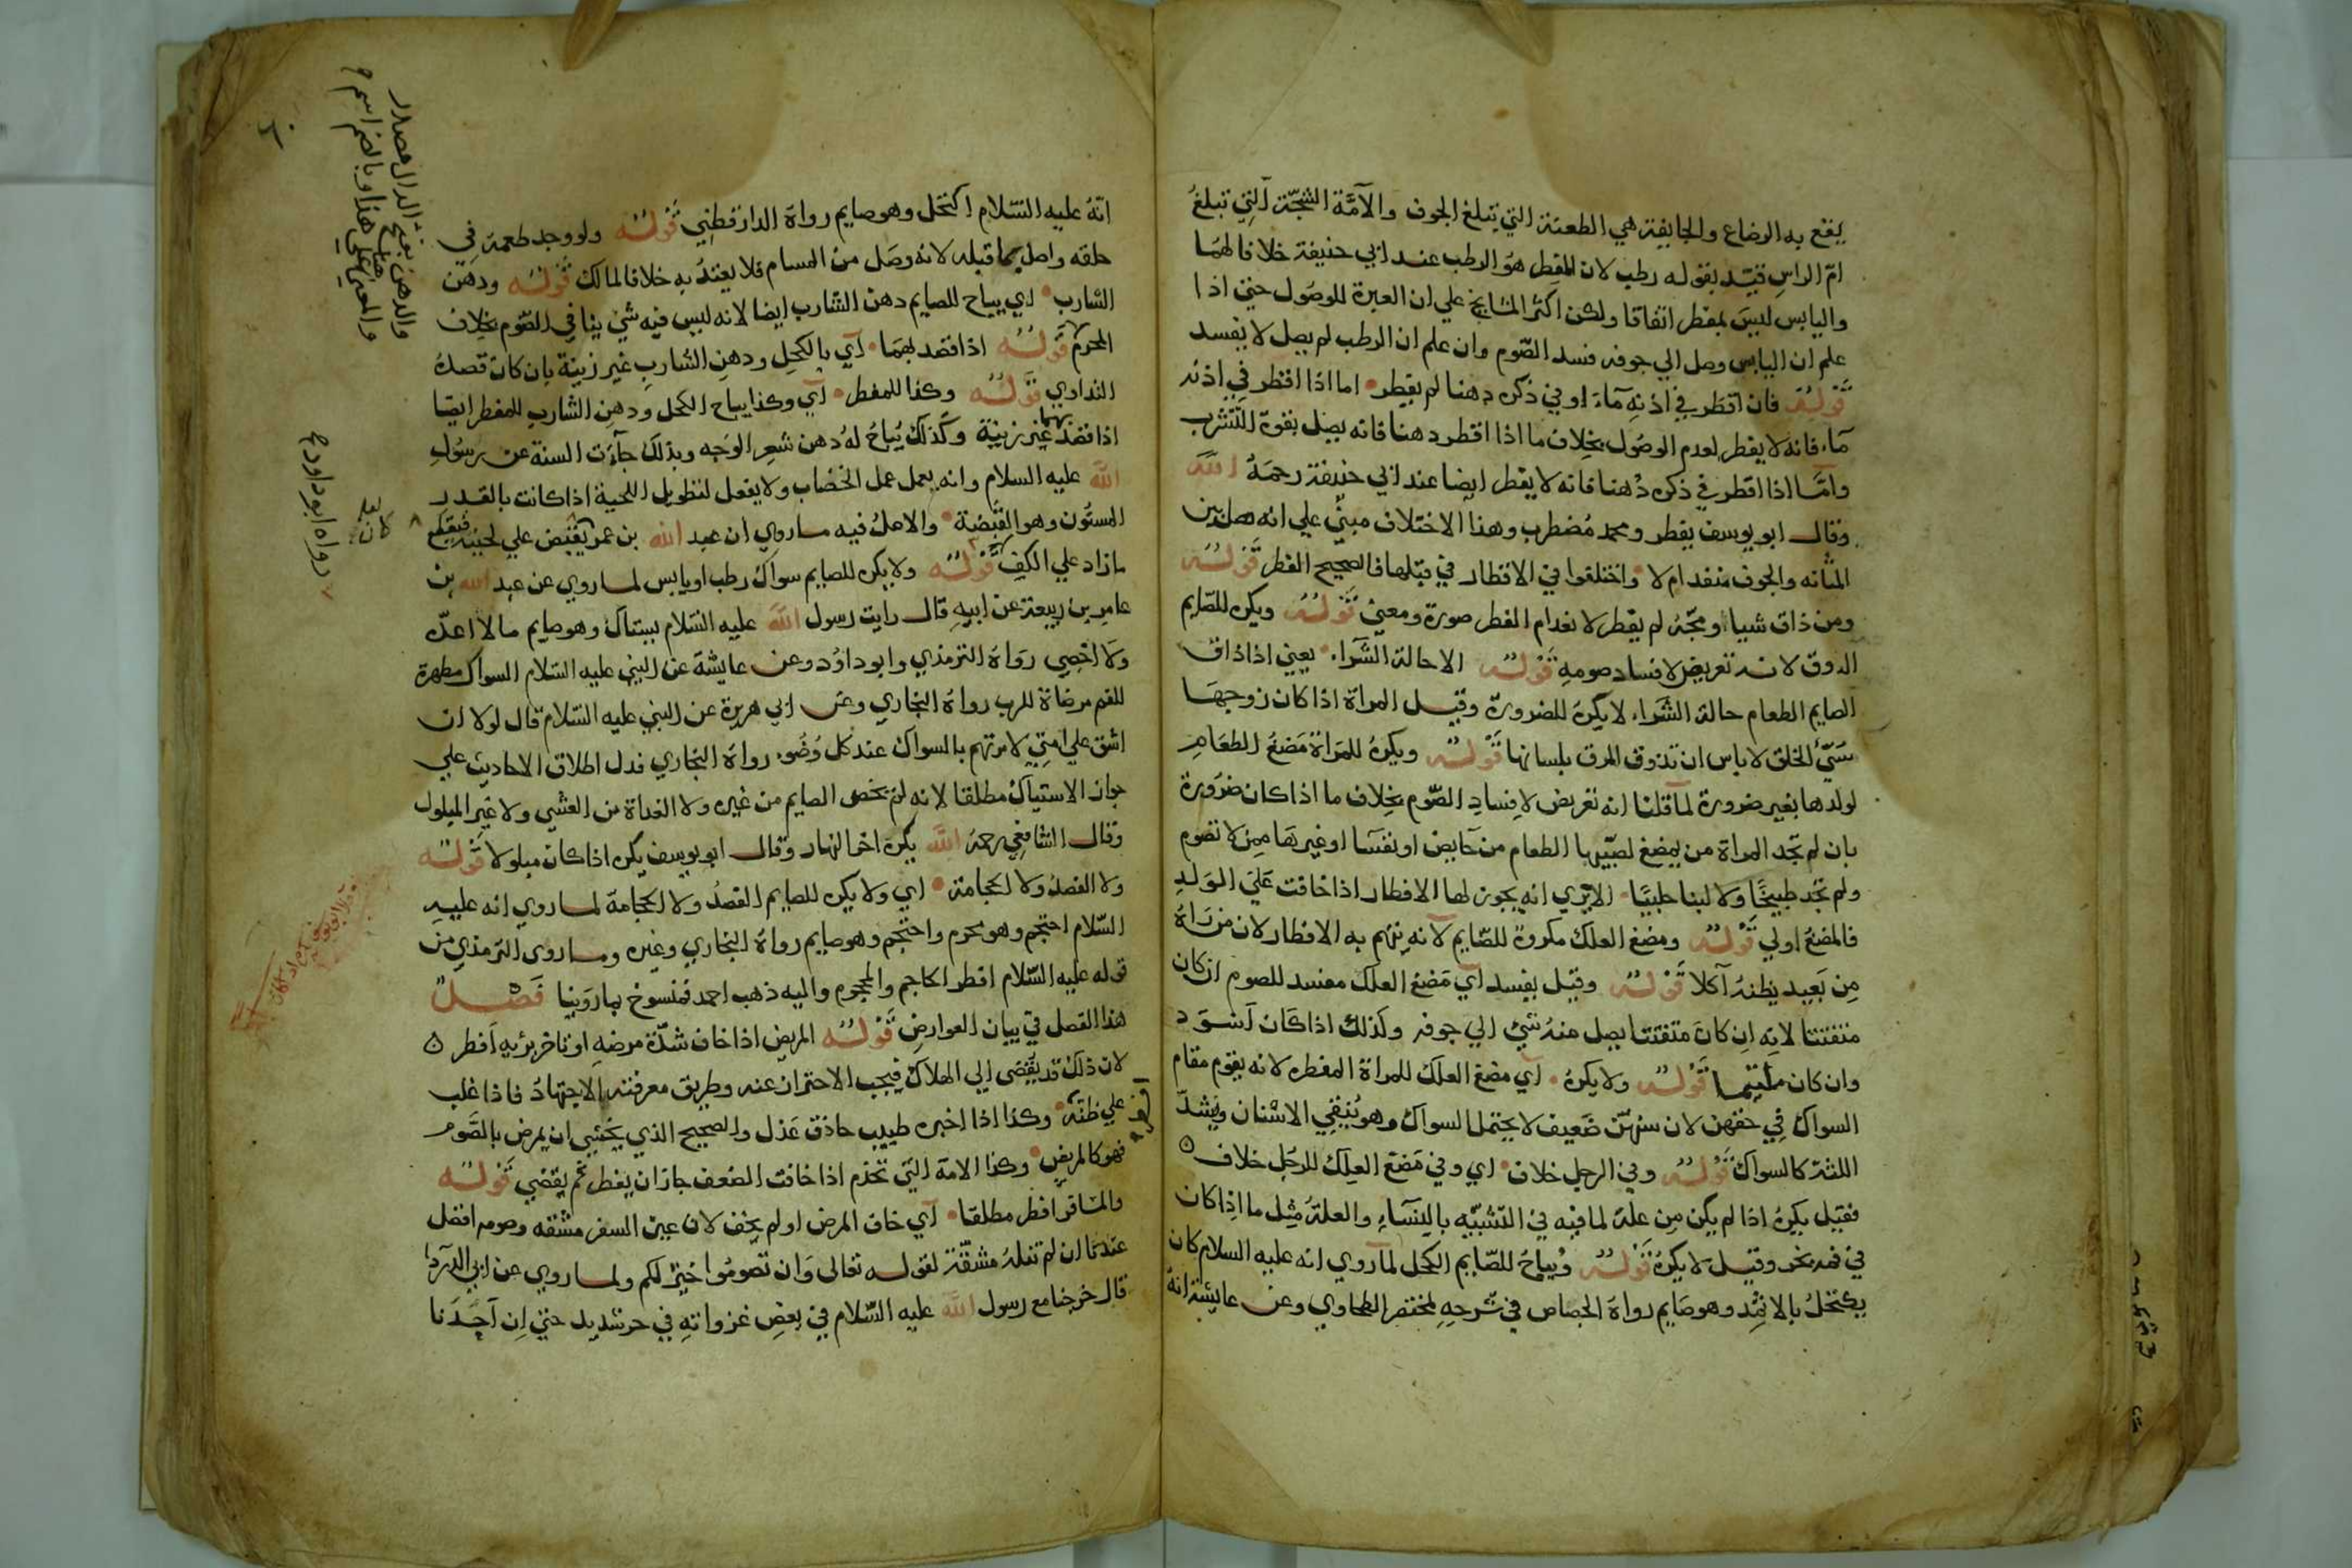 يقع به الرضاع والجايفة هي الطعنة التي تبلغ الجوف والآمّة الشجّة التي تبلغُ
امّ الراسِ قيّد بقوله رطب لان المفطر هُو الرطب عند ابي حنيفة خلافا لهمَا
واليابس ليسَ بمفطر اتفاقا ولكن اكثر المشايخ علي ان العبرة للوصُول حتي اذا
علم ان اليابس وصل الي جوفه فسد الصّوم وان علم ان الرطب لم يصل لا يفسد
قَوْلُهُ فان اقطَر في اذنِهِ مآءً او في ذكره دهنا لم يفطر اما اذا اقطر فِي اذنه
مآء فانه لا يفطر لعدم الوصُول بخلاف ما اذا اقطر دهنا فانه يصل بقوة التشرب
وامَّا اذا اقطر في ذكره دُهنا فانه لا يفطر ايضا عند ابي حنيفة رحمَهُ اللّه
وقال ابو يوسف يفطر ومحمد مُضطرب وهذا الاختلاف مبنيٌّ علي انه هل بين
المثانه والجوف منفد ام لا واختلفوا في الاقطار في قبلها فالصحيح الفطر قَوْلُهُ
ومن ذاق شيا ومجّهُ لم يفطر لانعدام الفطر صورة ومعني قَوْلُهُ ويكره للصّايم
الذوق لانه تعريض لافساد صومهِ قَوْلُهُ الا حالة الشّراء يعني اذا ذاق
الصايم الطعام حالة الشّراء لا يكرهُ للضرورة وقيل المراة اذا كان زوجهَا
سَيّئ الخلق لا باس ان تذوق المرق بلسانها قَوْلُهُ ويكرهُ للمَراة مَضغُ الطعَامِ
لولدها بغير ضرورة لما قلنا انه تعريض لافِسادِ الصّوم بخِلاف ما اذا كان ضرُورة
بان لم تجد المراة من يمضغ لصَبّيها الطعام من حَايض او نفسَا او غيرهَا ممِن لا تصُوم
ولم تجَد طبيخًا وَلا لبنا حليبًا الا يرَي انه يجوز لها الافطار اذا خافت عَلي الوَلدِ
فالمضغُ اولي قَوْلُهُ ومضغ العلك مكروهٌ للصّايم لانه يتهم به الافطار لان مَن رَآهُ
مِن بَعِيد يظنهُ آكلا قَوْلُهُ وقيل يفسد آي مَضغ العلك مفسد للصوم ان كان
متفتتا لانه ان كانَ متفتتا يصل منهُ شئ الي جوفه وكذلك اذا كَان آسْوَد
وان كان ملتيما قَوْلُهُ ولا يكرهُ آي مضغ العلك للمراة المفطره لانه يقوم مقام
السواك فِي حقهن لان سنهّن ضَعيف لا يحتمل السواك وهو يُنقي الاسْنان ويَشدّ
اللثة كالسواك قَوْلُهُ وفي الرجل خلاف اي وفي مَضغ العِلك للرجُل خلاف
فقيل يكرهُ اذا لم يكن مِن علة لما فيه في التشبّيه بالنسَآءِ والعلةُ مثِل ما اذِا كان
في فمه بخر وقيل لا يكرهُ قَوْلُهُ ويُباحُ للصّايم الكحل لما روي انه عليه السلام كان
يكتحلُ بالاثمِد وهو صَايم رواهَ الجصاص في شرحِهِ لمختصر الطحاوي وعن عايشة انهُ
انّهُ عليه السّلام اكتحَل وهو صايم رواهَ الدارقطِني قَوْلُهُ ولو وجد طعمهُ فِي
حلقه واصل بما قبله لانه وصَل من المسام فلا يعتدُ به خلافا لمالك قَوْلُهُ ودهن
الشارب اي يباح للصايم دهن الشارب ايضا لانه ليس فيه شي ينافي الصّوم بخلاف
المحرم قَوْلُهُ اذا قصد بهمَا آي بالكحل ودهن الشارب غير زينة بان كان قصدهُ
التداوي قَوْلُهُ وكذا للمفطر آي وكذا يباح الكحل ودهن الشارب للمفطر ايضا
اذا قصد بهما غير زينة وكذلك يُباحُ لهُ دهن شعرِ الوَجه وبذلك جآءت السنة عن رسُولِ
اللّه عليه السلام وانه يعمل عمل الخضاب ولا يفعل لتطويل اللحية اذا كانت بالقدر
المسنُون وهو القبُضة والاصل فيه ما روي ان عبد الله بن عمر يقبض علي لحيته فيقطع
ما زاد علي الكفِ قَوْلُهُ ولا يكره للصايم سواك رطب او يابس لما روي عن عبد الله بن
عامر بن ربيعة عن ابيهِ قال رايت رسول اللّه عليه السّلام يستاك وهو صايم مالا اعدّه
وَلا احصِي روَاهُ الترمذي وابو داوُد وعن عايشة عن النبي عليه السّلام السواك مطهرة
للفم مرضاة للرب رواهُ البخاري وعن ابي هريرة عن النبي عليه السّلام قال لولا ان
اشق علي امتِي لامرتهم بالسواك عند كل وُضُوء رواهُ البخاري فدل اطلاق الاحاديث علي
جواز الاستياك مطلقا لانه لم يخص الصايم من غيره ولا الغداة من العشي ولا غير المبلول
وقال الشافعِي رحمهُ اللّه يكره اخر النهار وقال ابو يوسف يكره اذا كان مبلولا قَوْلُهُ
ولا الفصدُ ولا الحجامة اي ولا يكره للصايم الفصدُ ولا الحجامة لما روي انه عليه
السّلام احتجم وهو محرم واحتجم وهو صايم رواهُ البخاري وغيره وما روى الترمذي من
قوله عليه السّلام افطر الحاجم والمحجوم واليه ذهب احمد فمنسوخ بما روَينا فَصْلٌ
هذا الفصل في بيان العوارض قَوْلُهُ المريض اذا خاف شدّة مرضهِ او تاخر برئِه اَفطر
لان ذلك قد يفُضى إلي الهلاك فيجب الاحتراز عنه وطريق معرفته الاجتهادُ فاذا غلب
علي ظنّه وكذا اذا اخبره طبيب حاذق عَدل والصحيح الذي يخشِي ان يمرض بالصّوم
فهو كالمريض وكذا الامة التي تخدم اذا خافت الضعف جاز ان يفطر ثم يقضي قَوْلُهُ
والمسافر افطر مطلقا آي خاف المرض او لم يخف لان عين السفر مشقه وصومه افضل
عندنا ان لم تنلهُ مشقّة لقوله تعالى وَان تصُومُوا خيرٌ لكم ولما روي عن ابي الدَّردَا
قال خرجنا مع رسول اللّه عليه السّلام في بعض غزواتهِ في حر شديد حتي اِن آحَدَنا
والدهن بفتح الدال مصدر
وبالضم اسم
والمعني علي هذا
رواه ابو داود
لعله كان